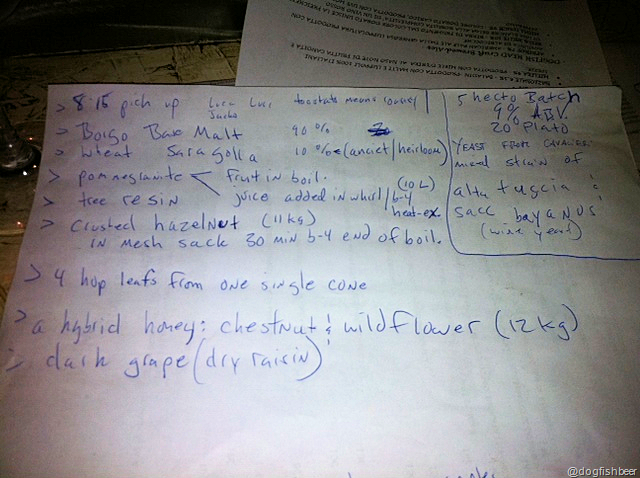 > 8:15 pick up
> Borgo Base Malt 90%
> Wheat Saragolla 10% (anciet/heirloom)
> pomegranite < fruit in boil.
juice added in whirl/b-4 heat-ex. (10 L)
> tree resin
> Crusted hazelnut (11kg)
IN mesh sack 30 min b-4 end of boil.
> 4 hop leafs from one single cone
> a hybrid honey: chestnut & wildflower (12kg)
> dark grape (dry raisin)
5 hecto Batch
9% ABV
20 Plato
YEAST FROM
mixed strain of
alta tuscia &
sacc bayanus
(wine yeast)
@dogfishbeer